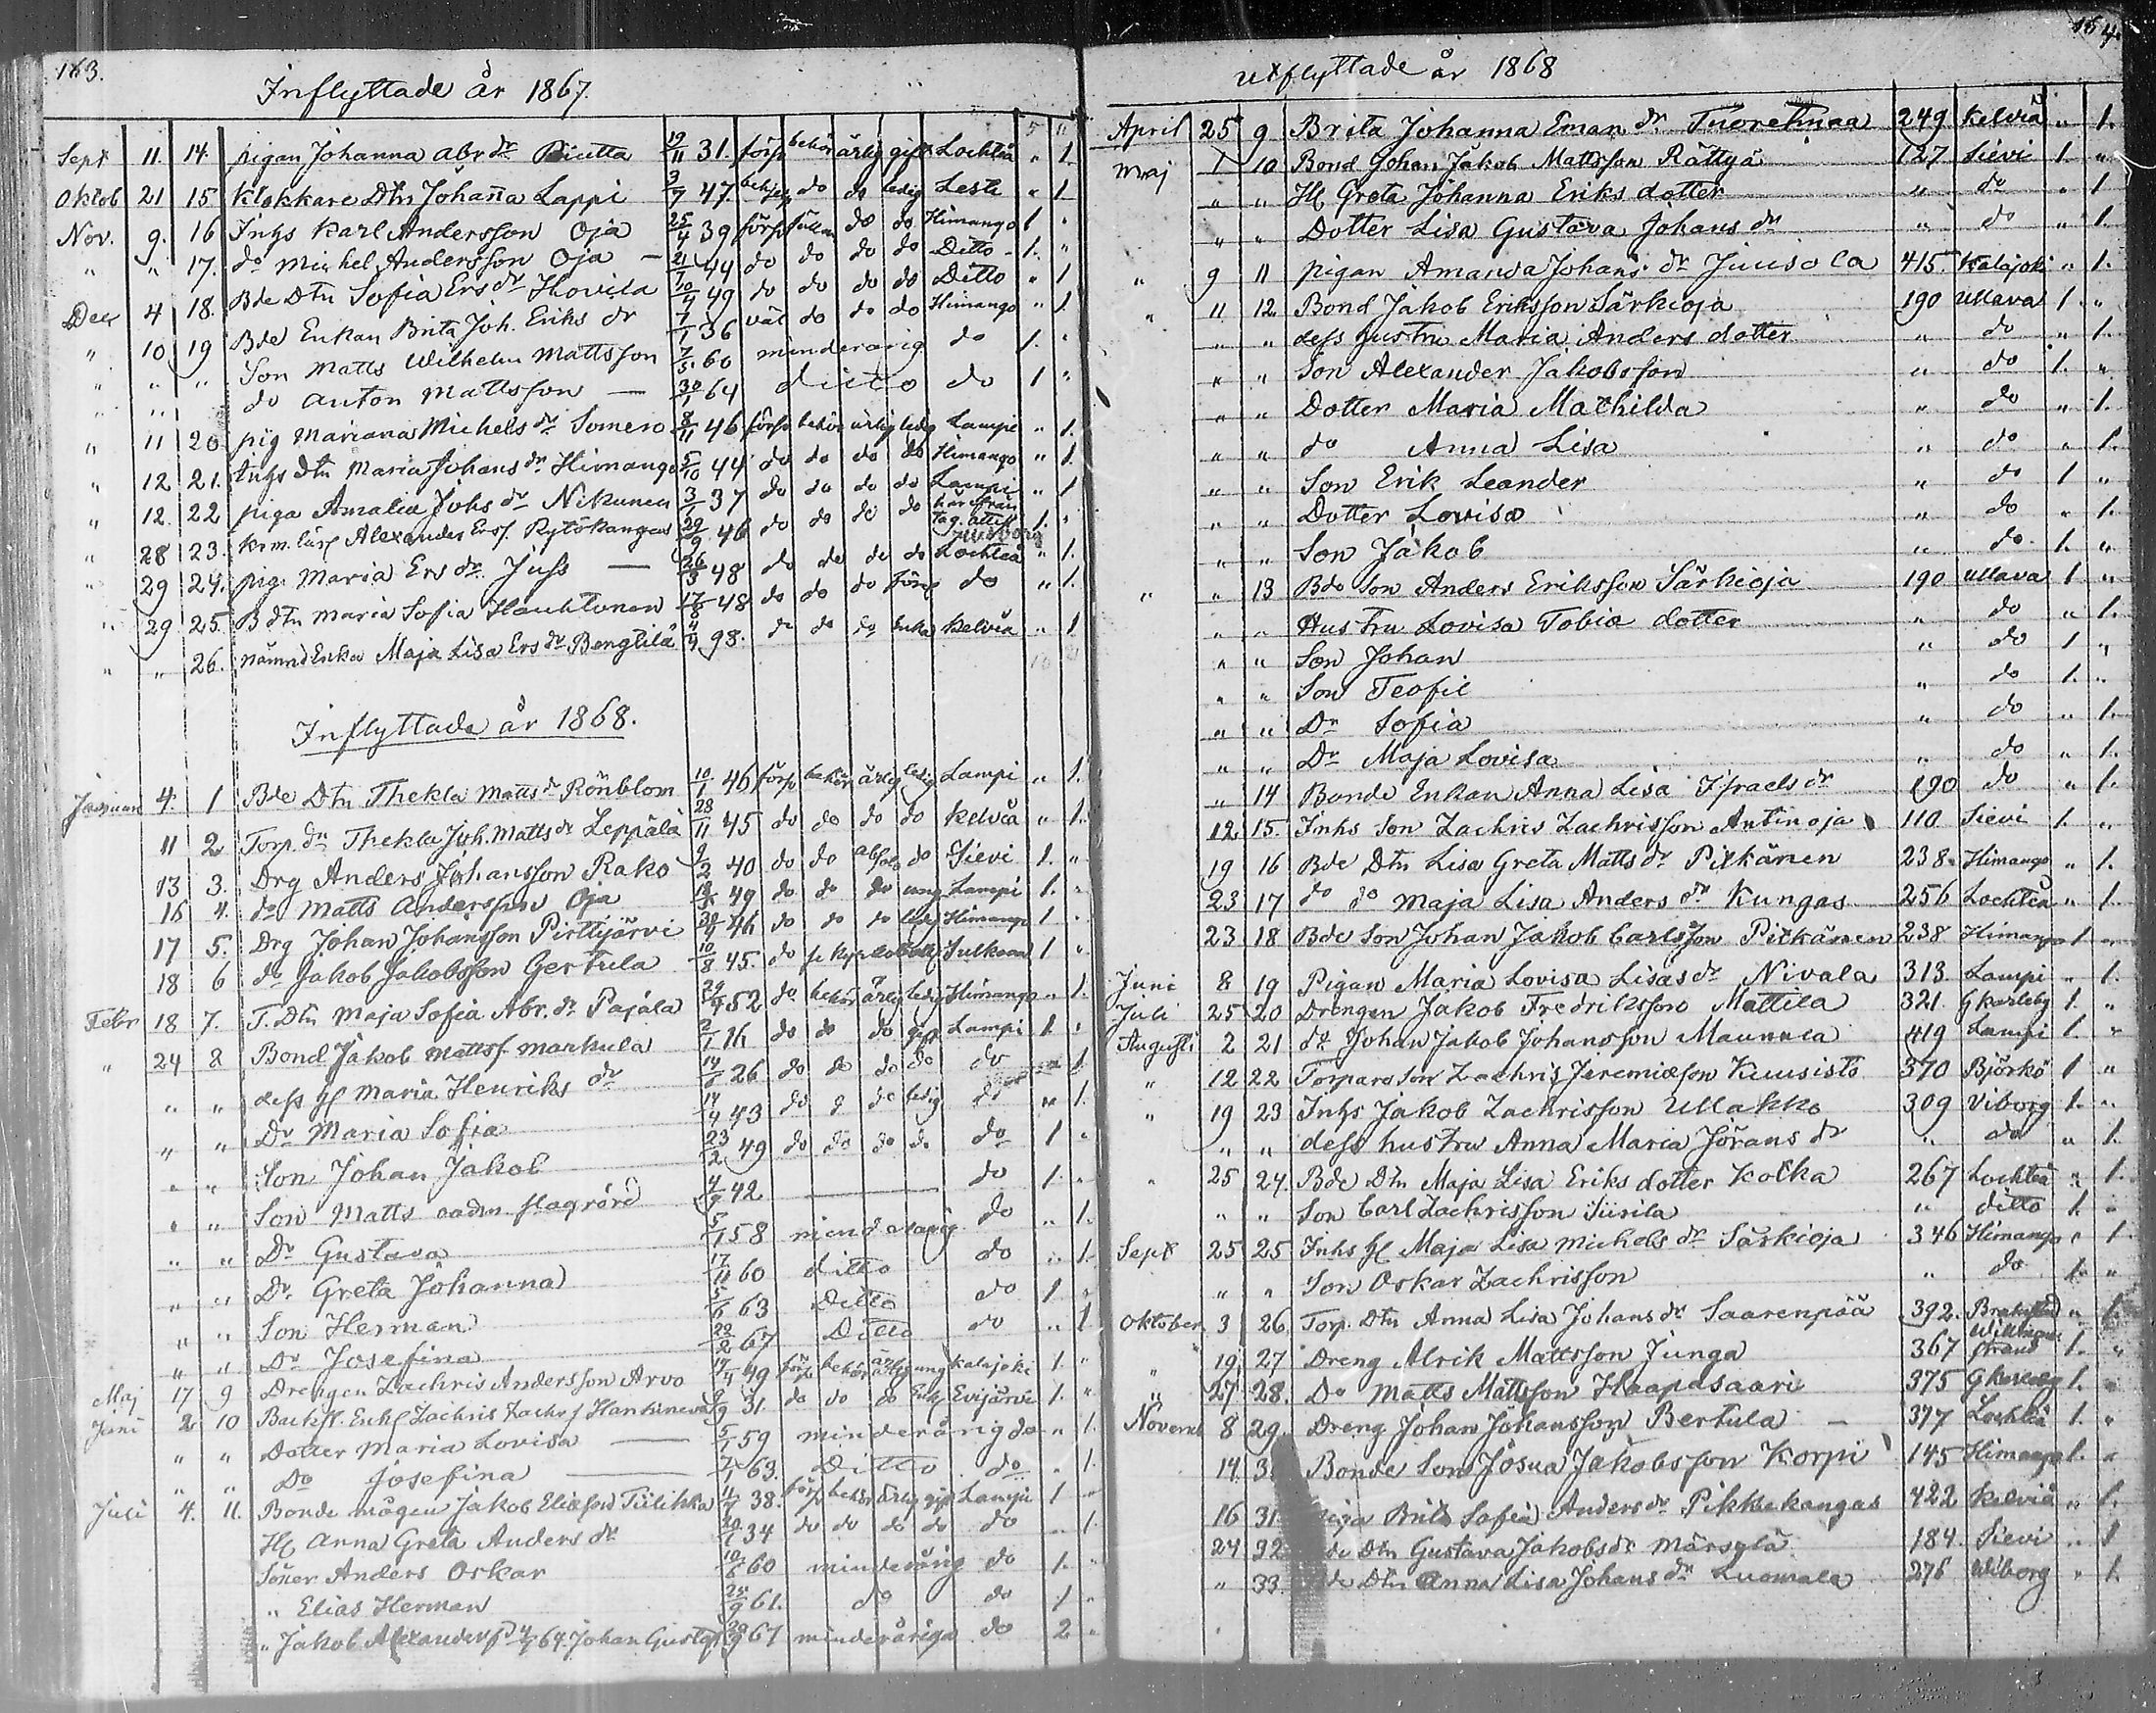 163.
Inflyttade år 1867.
Sept 11. 14. pigan Johanna Abr dr Piutta 19/11 31. förs behör ärlig gift Lochteå " 1.
Oktob 21 15 Klokkare Dtn Johanna Lappi 3/7 47. do do ledig Lesti " 1
Nov. 9. 16 Inhs Karl Andersson Oja 25/4 39 förs do do Himango 1 "
" " 17. do Michel Andersson Oja — 21/ 44 do do do do Ditto 1. "
Dec 4 18. Bde Dtn Sofia Ers dr Hovila 10/4 49 do do do do Ditto " 1
" 10 19 Bde Enkan Brita Joh. Eriks dr 7/1 36 väl do do do Himango " 1.
" " " Son Matts Wilhelm Mattsson 7/5 60 minderarig do 1. "
" " do Anton Mattsson — 30/1 64 ditto do 1 "
" 11 20 pig Mariana Michels dr Somero 8/11 46 förs behör ärlig ledig Lampi " 1.
" 12 21. Inhs dtn Maria Johans dr Himango 5/10 44 do do do do Himango " 1.
" 12. 22 piga Amalia Johs dr Nikunen 3/1 37 do do do do Lampi " 1
" 28 23. Alexander Ers. Rytökangas 29/9 46 do do do do härifrån tag. attest 1. "
" 29 24. pig. Maria Ers dr Juss — 26/3 48 do do do do Lochteå " 1.
" 29 25. B dtn Maria Sofia Hauhtonen 17/8 48 do do do do " 1.
" " 26. nämnd Enka Maja Lisa Ers dr Bengtilä 4/4 98. do do do Enka Kelviå " 1
Inflyttade år 1868.
Januari 4. 1 Bde Dtn Thekla Matts dr Rönblom 10/1 46 förs behör ärlig ledig Lampi " 1.
11 2 Torp. dr Thekla Joh. Matts dr Leppälä 28/11 45 do do do do Kelviå " 1.
13 3. Drg Anders Johansson Rako 9/2 40 do do do Sievi 1. "
16 4. do Matts Andersson Oja 49 do do do ung Lampi 1. "
17 5. Drg Johan Johansson Pirttijärvi 30/9 46 do do do ledig Himango 1 "
18 6 do Jakob Jakobsson Gertula 10/8 45. do 1 "
Febr 18 7. T. Dtn Maja Sofia Abr. dr Pajala 52 do behör ärlig ledig Himango " 1.
" 24 8 Bond Jakob Mattss. Markula 2/1 16 do do do gift Lampi 1. "
" " dess H Maria Henriks dr 14/6 26 do do do do do " 1
" " Dr Maria Sofia 14/4 43 do do ledig do " 1.
" " Son Johan Jakob 23/2 49 do do do do do 1 "
" " Son Matts 4/9 42 — do 1. "
" " Dr Gustava 5/1 58 minderarig do " 1.
" " Dr Greta Johanna 17/11 60 ditto do " 1.
" " Son Herman 5/6 63 Ditto do 1. "
" " Dr Josefina 22/2 67 Ditto do " 1
Maj 17 9 Drengen Zachris Andersson Arvo 14/4 49 förs behör ärlig ung Kalajoki 1. "
Juni 2 10 Backst. Enkl Zachris Zachs. Hankaneva 9/9 31. do do do Enkl Evijärvi 1. "
" " Dotter Maria Lovisa — 5/1 59 minderårig do " 1.
" " Do Josefina — 7/1 63. Ditto do " 1.
Juli 4. 11. Bonde mågen Jakob Eliasson Tiilikka 11/7 38. förs behör ärlig gift Lampi 1 "
H Anna Greta Anders dr 20/1 34 do do do do do " 1.
Söner Anders Oskar 10/6 60 minderårig do 1. "
" Elias Herman 25/9 61. do do 1 "
" Jakob Alexander 64. Johan Gustaf 67 minderåriga do 2 "
164.
Utflyttade år 1868
April 25 9. Brita Johanna Eman dr Tuoretmaa 249 Kelviå " 1.
Maj 1 10 Bond Johan Jakob Mattsson Rättyä 127 Sievi 1. "
" " H Greta Johanna Eriks dotter " do " 1
" " Dotter Lisa Gustava Johans dr " do " 1.
" 9 11 pigan Amanda Johans dr Juusola 415. Kalajoki " 1.
" 11 12 Bond Jakob Eriksson Särkioja 190 Ullava 1. "
" " dess hustru Maria Anders dotter " do " 1.
" " Son Alexander Jakobsson " do 1. "
" " Dotter Maria Mathilda " do " 1.
" " do Anna Lisa " do " 1.
" " Son Erik Leander " do 1 "
" " Dotter Lovisa " do " 1.
" " Son Jakob " do. 1. "
" " 13 Bde Son Anders Eriksson Särkioja 190 Ullava 1. "
" " Hustru Lovisa Tobia dotter " do " 1.
" " Son Johan " do 1 "
" " Son Teofil " do 1. "
" " Dr Sofia " do " 1.
" " Dr Maja Lovisa " do " 1.
" 14 Bonde Enkan Anna Lisa Israels dr 190 do " 1.
12 15. Inhs Son Zachris Zachrisson Antinoja 110 Sievi 1. "
19 16 Bde Dtn Lisa Greta Matts dr Pitkänen 238. Himango " 1.
23 17 do do Maja Lisa Anders dr Kungas 256 Lochteå " 1.
23 18 Bde Son Johan Jakob Carlsson Pitkänen 238 Himango 1 "
Juni 8 19 Pigan Maria Lovisa Lisas dr Nivala 313. Lampi " 1.
Juli 25 20 Drengen Jakob Fredriksson Mattila 321. Gkarleby 1. "
Augusti 2 21 dr Johan Jakob Johansson Maunula 419 Lampi 1. "
" 12 22 Torpare son Zachris Jeremiasson Kuusisto 370 Björkö 1 "
" 19 23 Inhs Jakob Zachrisson Ullakko 309 Viborg 1. "
" " dess hustru Anna Maria Jörans dr " do " 1.
" 25 24. Bde Dtn Maja Lisa Eriks dotter Kotka 267 Lochteå " 1.
" " Son Carl Zachrisson Siirila " ditto 1. "
Sept 25 25 Inhs H Maja Lisa Michels dr Särkioja 346 Himango " 1
" " Son Oskar Zachrisson " do 1. "
Oktober 3 26 Torp. Dtn Anna Lisa Johans dr Saarenpää 392. Brahestad " 1.
" 19 27 Dreng Alrik Mattsson Junga 367 Willmanstrand 1. "
" 27 28. Do Matts Mattsson Haapasaari 375 Gkarleby 1. "
Novemb 8 29. Dreng Johan Johansson Bertula — 377 Lochteå 1. "
14. Bonde Son Josua Jakobsson Korpi 145 Himango 1. "
16 31 Brita Sofia Anders dr Pikkukangas 422 Kelviå " 1.
24 32 Dtn Gustava Jakobs dr Märsylä 184. Sievi " 1
" 33. Dtn Anna Lisa Johans dr Luomala 276 Wiborg " 1.